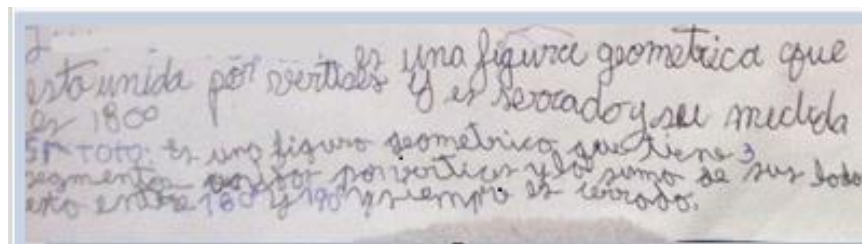 es una figura geometrica que
esta unida por vertises y es serrado y su medida
es 180º
TOTO: es una figura geometrica que tiene 3
segmentos unidos por vertices y la suma de sus lados
esta entre 180º y 190º y siempre es cerrado.